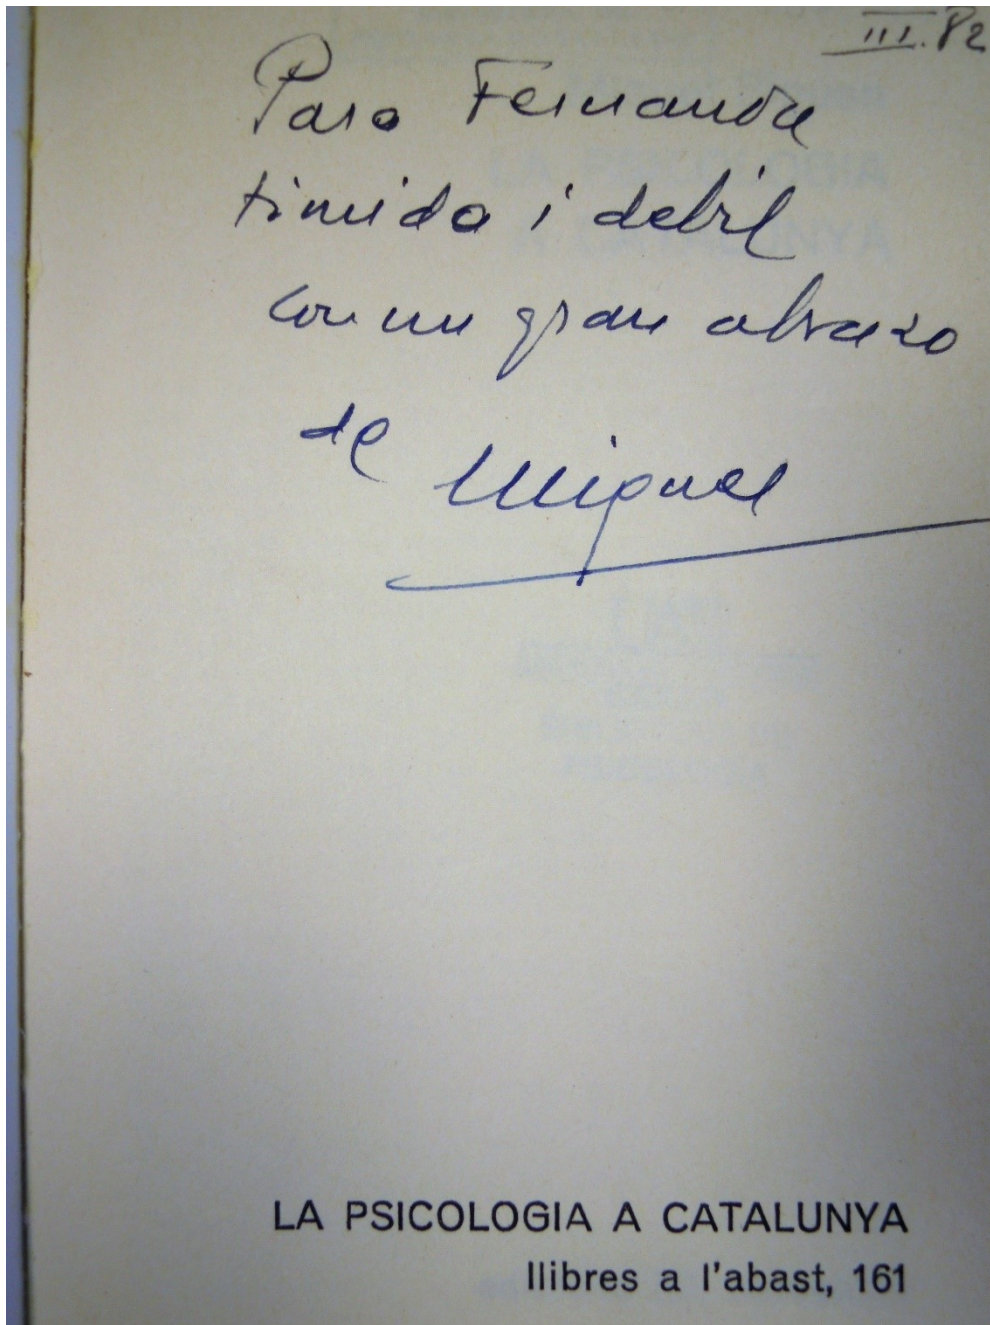 III.82
Para Fernanda
timida i debil
con un gran abrazo
de Miguel
LA PSICOLOGIA A CATALUNYA
llibres a l'abast, 161